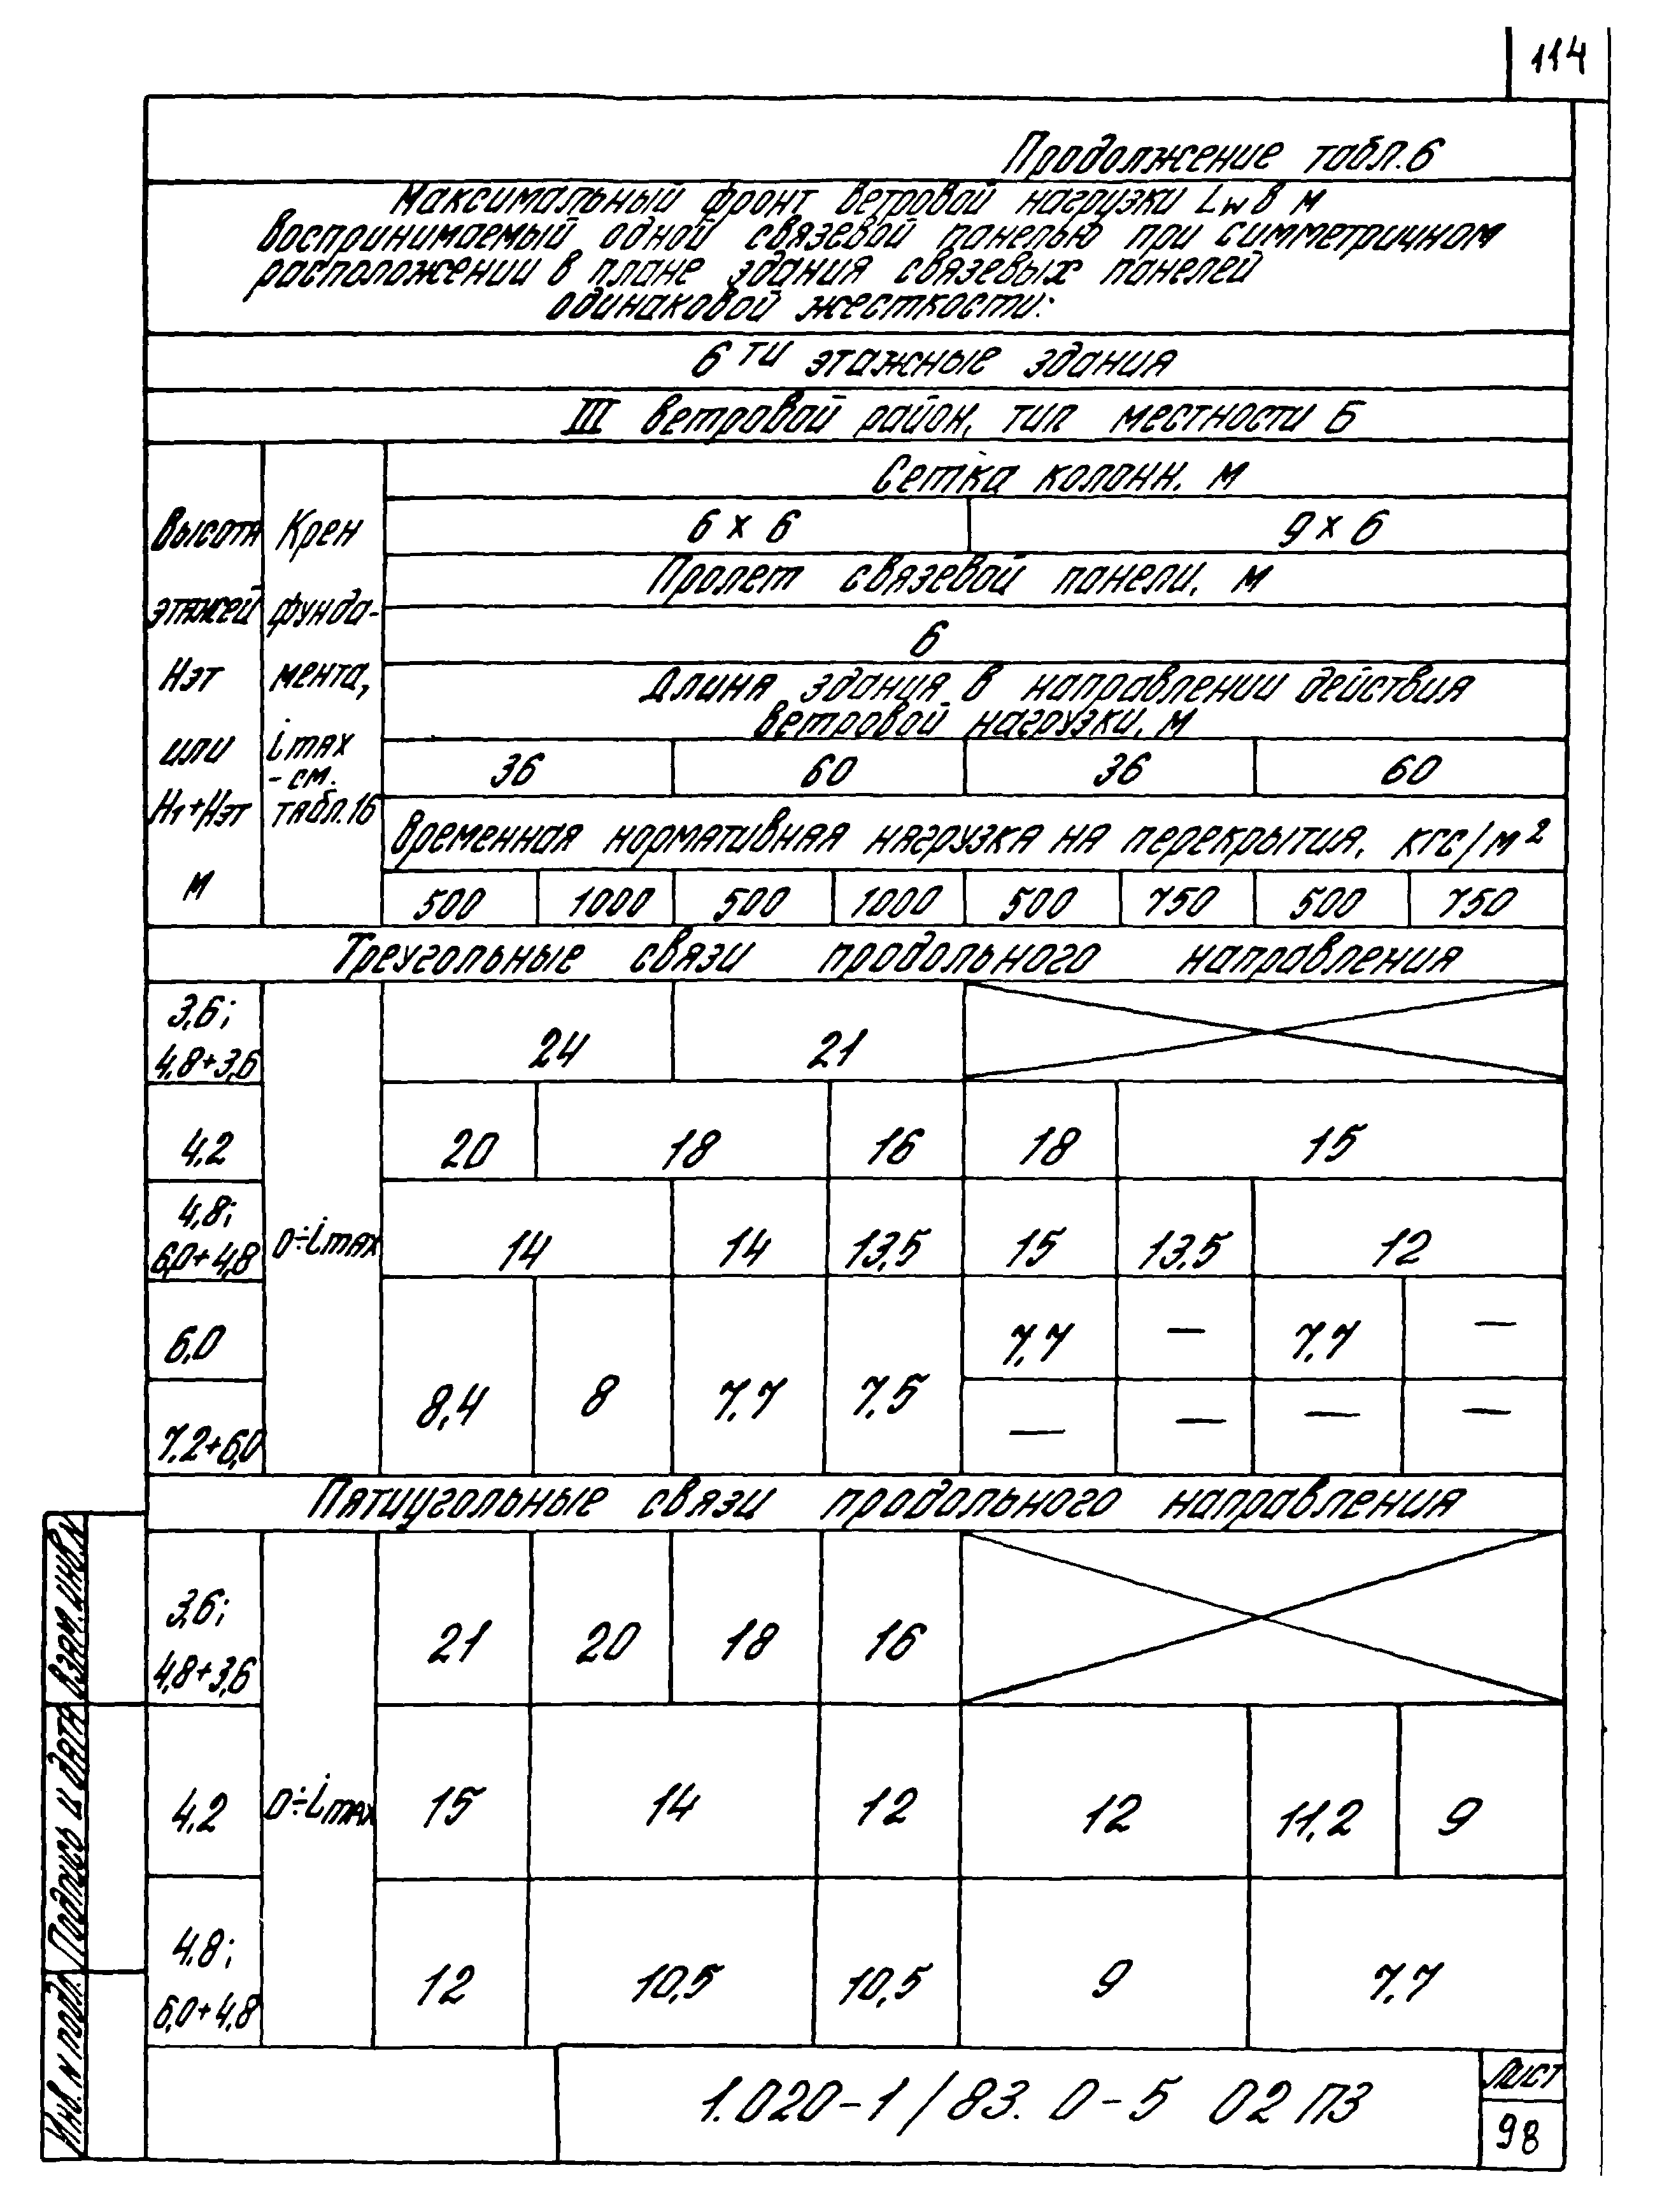 114
Продолжение табл.6
Максимальный фронт ветровой нагрузки Lw в м
воспринимаемый одной связевой панелью при симметричном
расположении в плане здания связевых панелей
одинаковой жесткости:
6ти этажные здания
III ветровой район, тип местности Б
Высота этажей Нэт или Н1+Нэт м
Крен фунда-мента, imax - см. табл.16
Сетка колонн, м
6 х 6 9 х 6
Пролет связевой панели, м
6
Длина здания в направлении действия
ветровой нагрузки, м
36 60 36 60
Временная нормативная нагрузка на перекрытия, кгс/м²
500 1000 500 1000 500 750 500 750
Треугольные связи продольного направления
3,6;
4,8+3,6 24 21
4,2 20 18 16 18 15
4,8;
6,0+4,8 0÷imax 14 14 13,5 15 13,5 12
6,0 7,7 — 7,7 —
7,2+6,0 8,4 8 7,7 7,5 — — — —
Пятиугольные связи продольного направления
3,6;
4,8+3,6 21 20 18 16
4,2 0÷imax 15 14 12 12 11,2 9
4,8;
6,0+4,8 12 10,5 10,5 9 7,7
Взам. инв. №
Подпись и дата
Инв. № подл.
1.020-1/83. 0-5 02 ПЗ
Лист
98